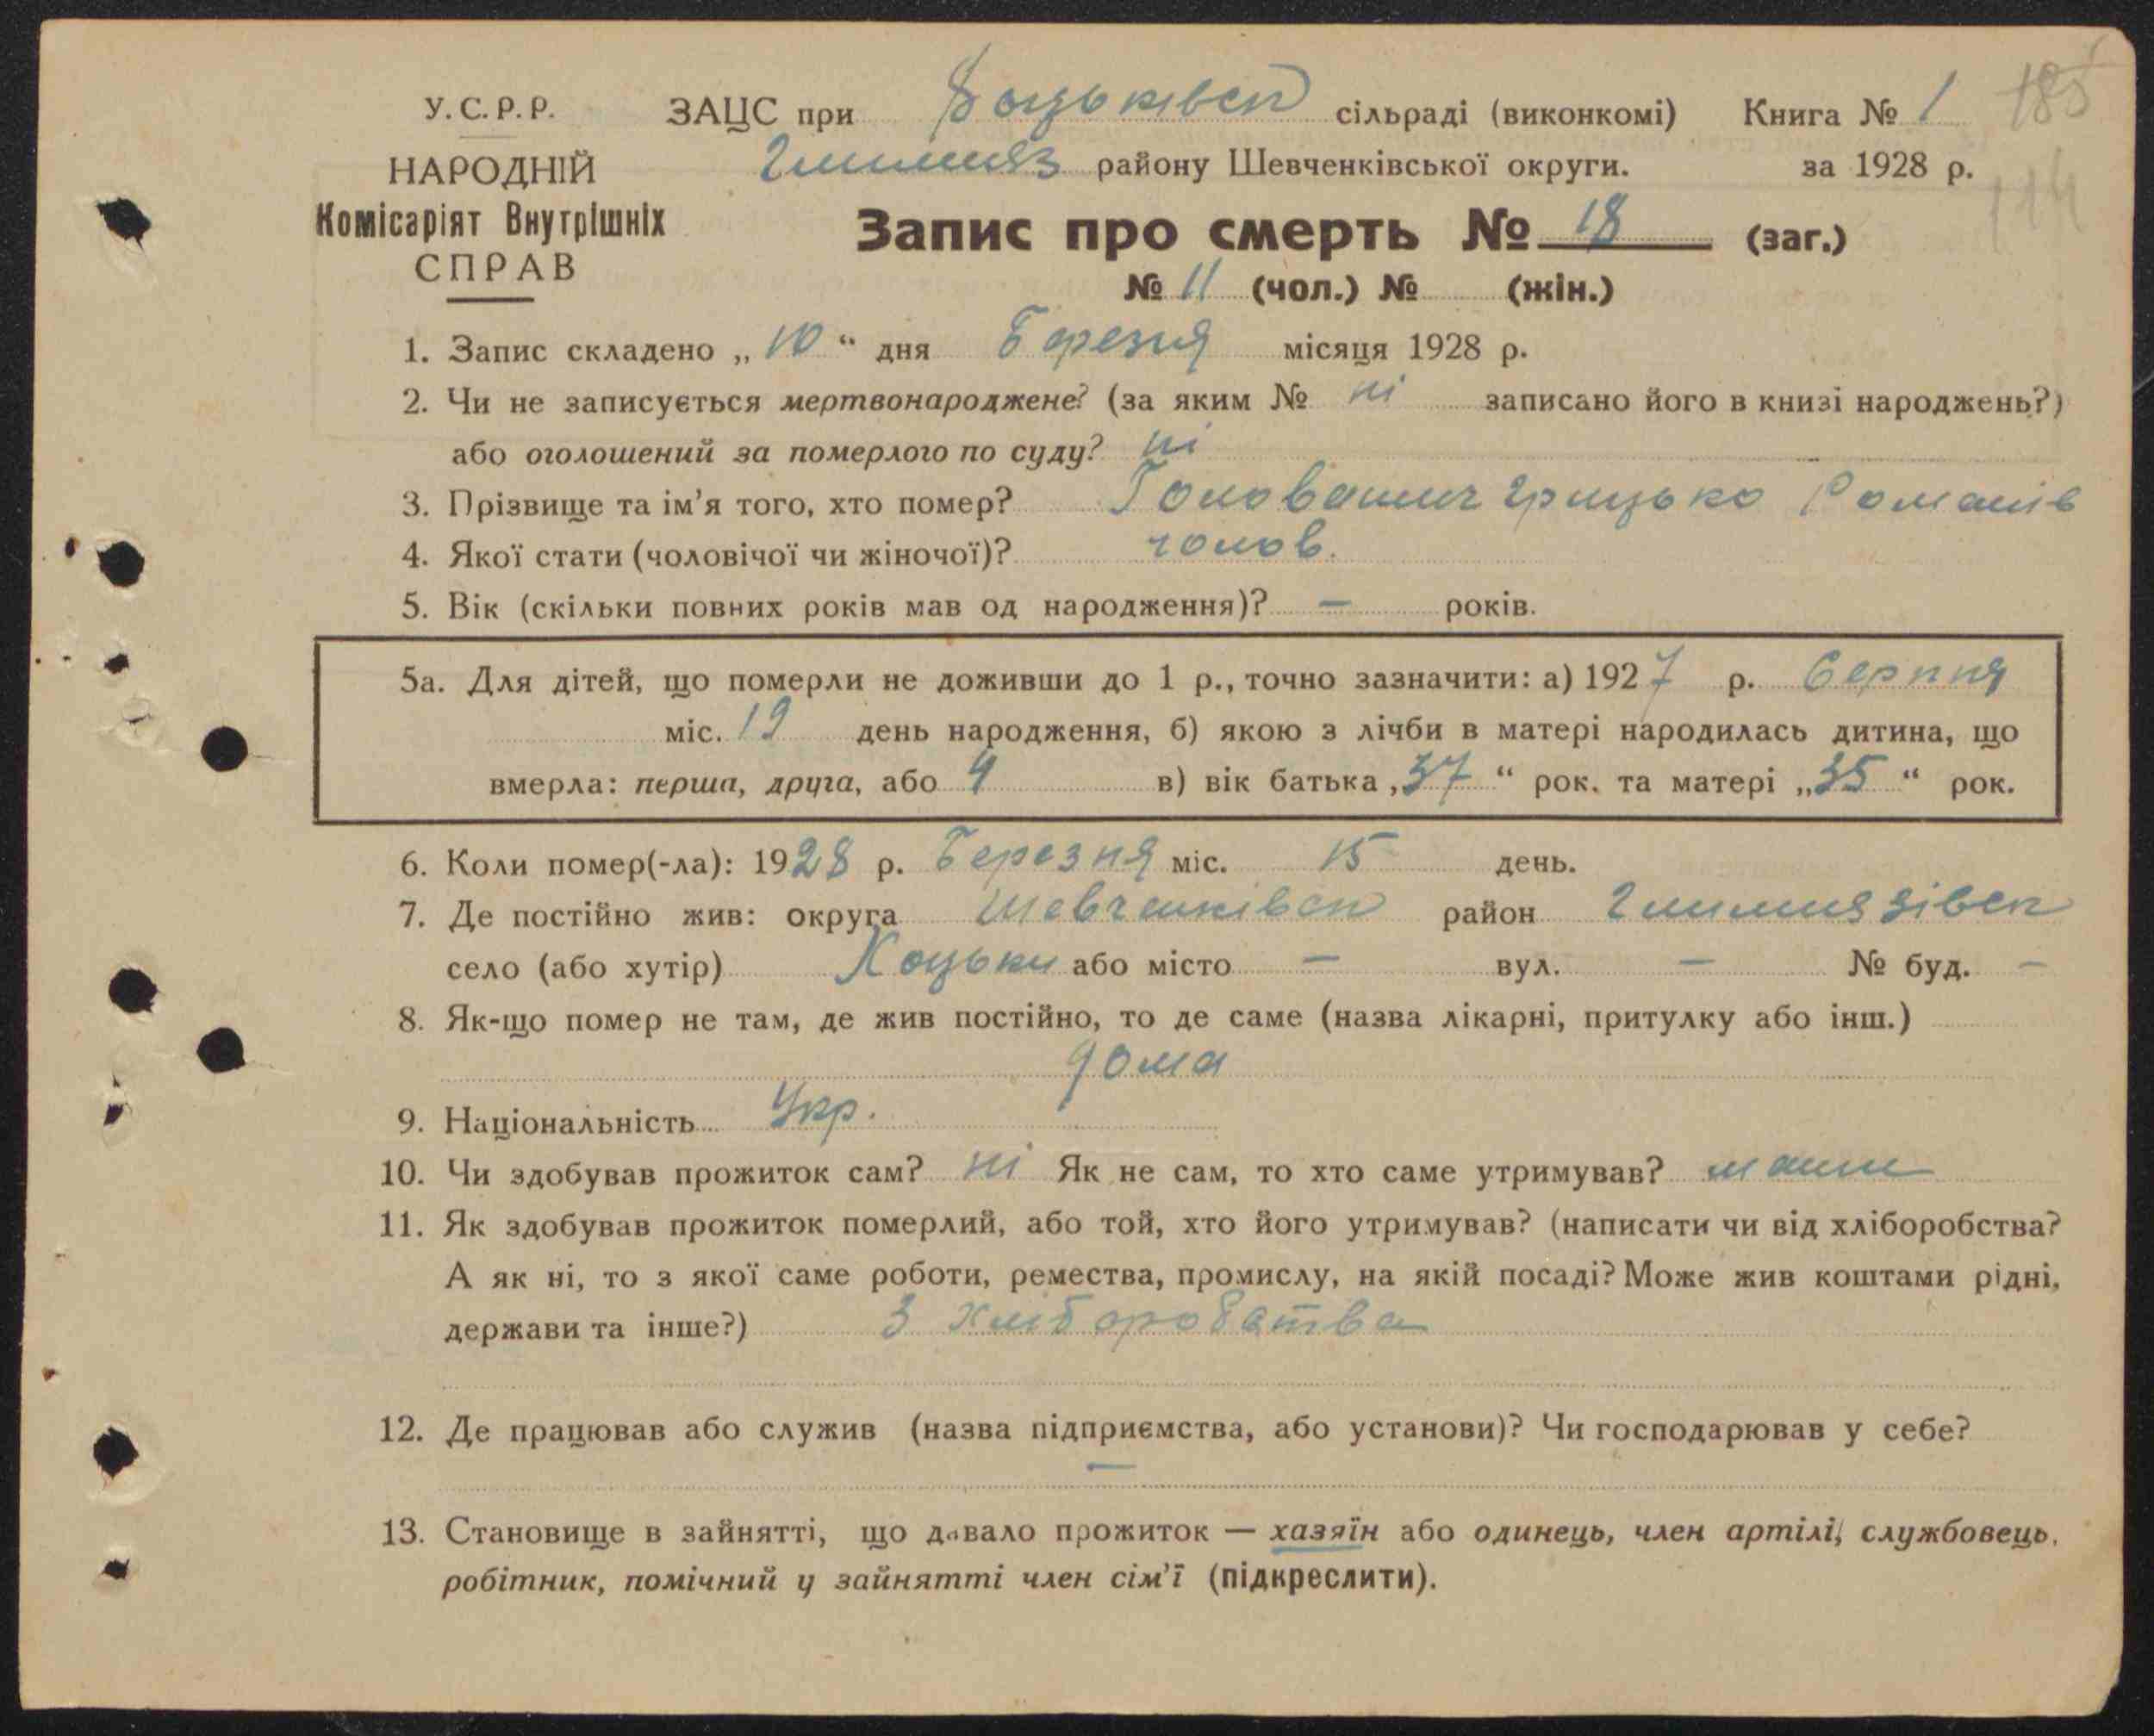 У.С.Р.Р. ЗАЦС при Коцьківськ сільраді (виконкомі) Книга № 1 185
НАРОДНІЙ Глимяз району Шевченківської округи. за 1928 р. 114
Комісаріят Внутрішніх
СПРАВ
Запис про смерть № 18 (заг.)
№ 11 (чол.) № (жін.)
1. Запис складено „ 10 “ дня Березня місяця 1928 р.
2. Чи не записується мертвонароджене? (за яким № ні записано його в книзі народжень?)
або оголошений за померлого по суду? ні
3. Прізвище та ім’я того, хто помер? Головатич Грицько Романів
4. Якої стати (чоловічої чи жіночої)? чолов.
5. Вік (скільки повних років мав од народження)? — років.
5а. Для дітей, що померли не доживши до 1 р., точно зазначити: а) 1927 р. Серпня
міс. 19 день народження, б) якою з лічби в матері народилась дитина, що
вмерла: перша, друга, або 4 в) вік батька „37“ рок. та матері „35“ рок.
6. Коли помер(-ла): 1928 р. Березня міс. 15 день.
7. Де постійно жив: округа Шевченківськ район
село (або хутір) Коцьки або місто — вул. — № буд. —
8. Як-що помер не там, де жив постійно, то де саме (назва лікарні, притулку або інш.)
дома
9. Національність Укр.
10. Чи здобував прожиток сам? ні Як не сам, то хто саме утримував? мати
11. Як здобував прожиток померлий, або той, хто його утримував? (написати чи від хліборобства?
А як ні, то з якої саме роботи, ремества, промислу, на якій посаді? Може жив коштами рідні,
держави та інше?) З хліборобства
12. Де працював або служив (назва підприємства, або установи)? Чи господарював у себе?
—
13. Становище в зайнятті, що давало прожиток — хазяїн або одинець, член артілі, службовець,
робітник, помічний у зайнятті член сім’ї (підкреслити).